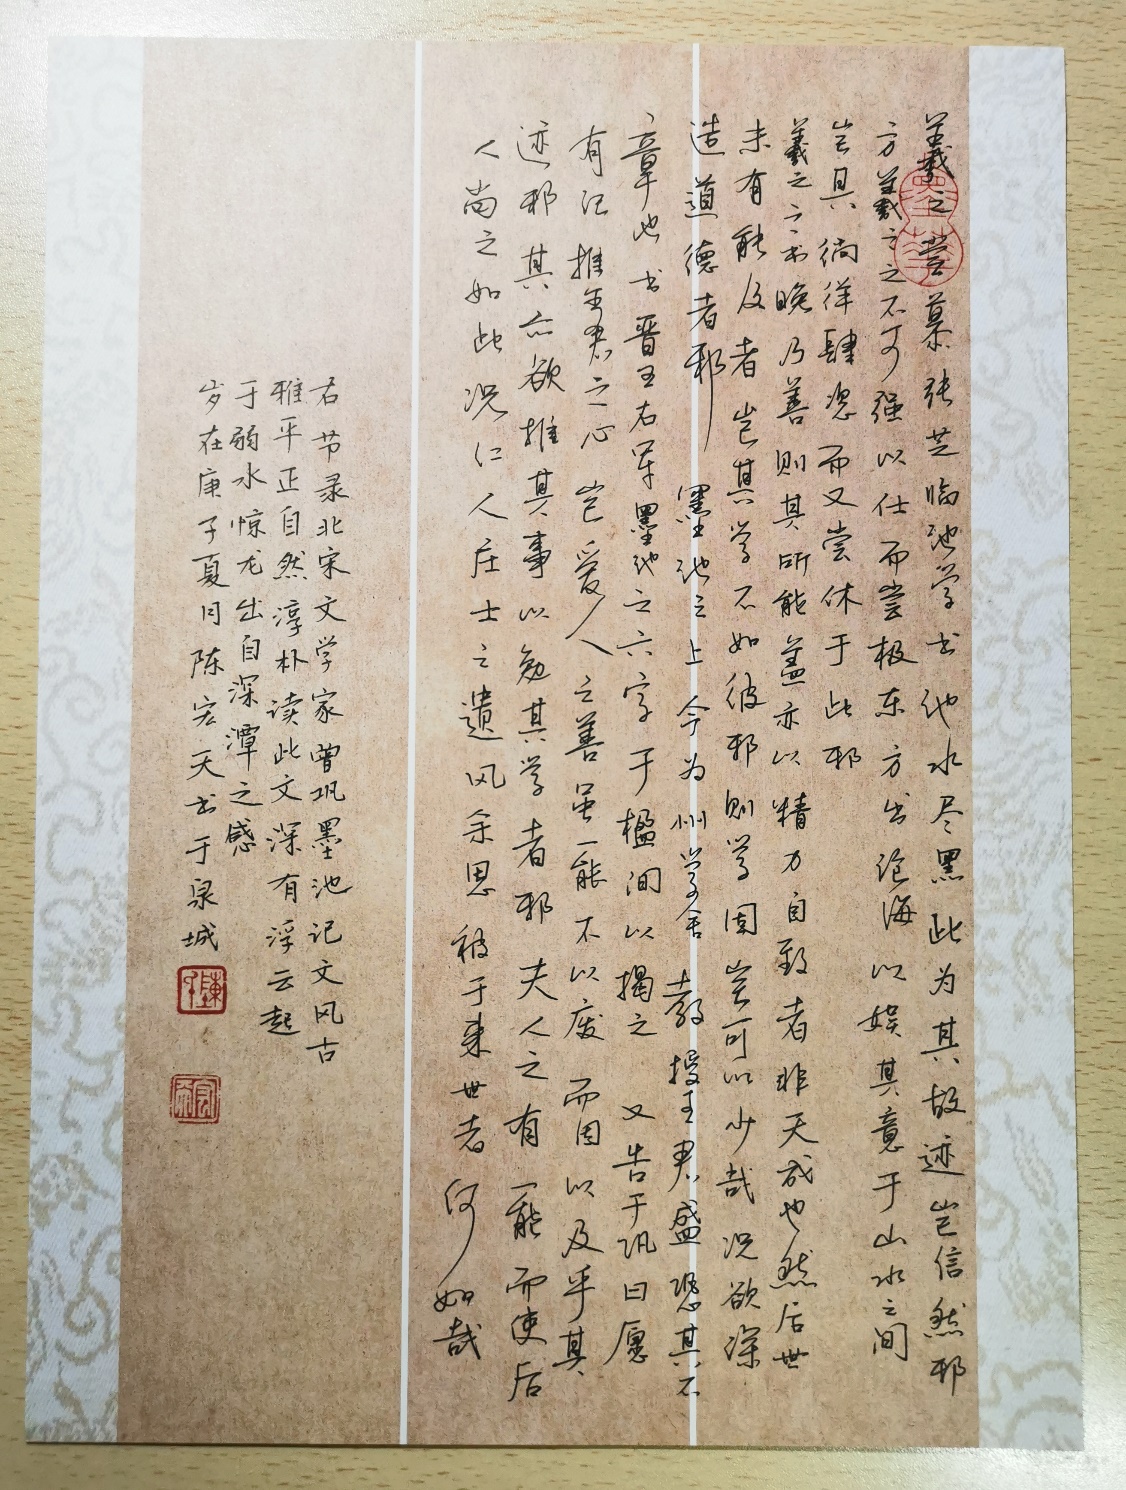 羲之尝慕张芝临池学书池水尽黑此为其故迹岂信然邪
方羲之之不可强以仕而尝极东方出沧海以娱其意于山水之间
岂其徜徉肆恣而又尝休于此邪
羲之之书晚乃善则其所能盖亦以精力自致者非天成也然后世
未有能及者岂其学不如彼邪则学固岂可以少哉况欲深
造道德者邪 墨池之上今为州学舍教授王君盛恐其不
章也书晋王右军墨池之六字于楹间以揭之又告于巩曰愿
有记推王君之心岂爱人之善虽一能不以废而因以及乎其
迹邪其亦欲推其事以勉其学者邪夫人之有一能而使后
人尚之如此况仁人庄士之遗风余思被于来世者何如哉
右节录北宋文学家曾巩墨池记文风古
雅平正自然淳朴读此文深有浮云起
于弱水惊龙出自深潭之感
岁在庚子夏月陈宏天书于泉城